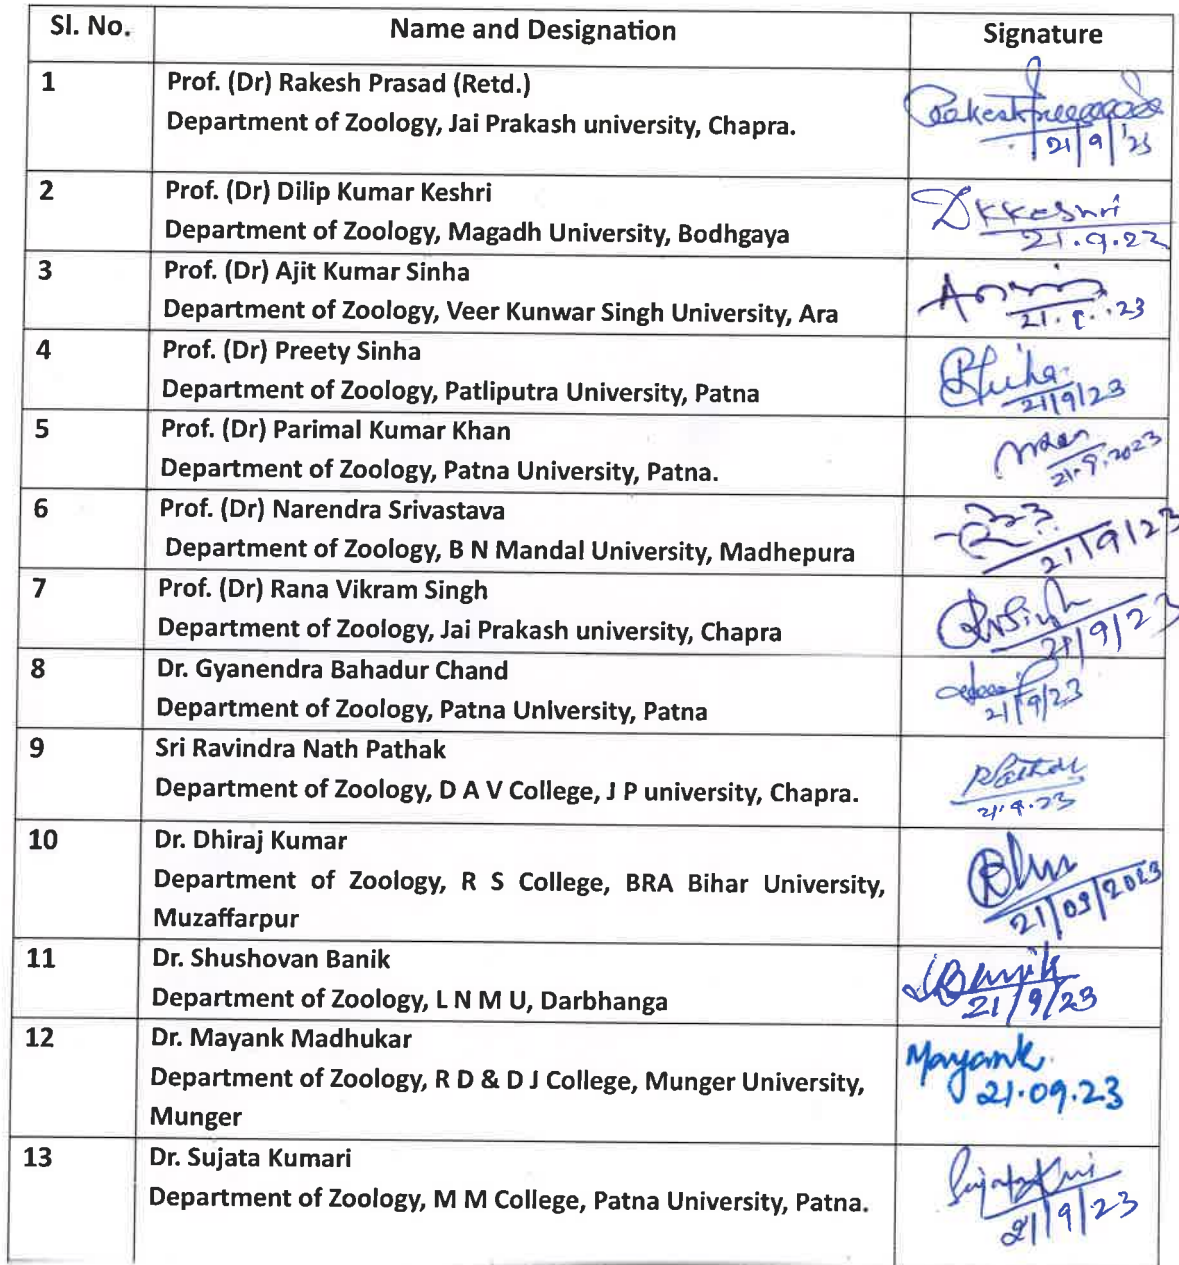 Sl. No. Name and Designation Signature
1 Prof. (Dr) Rakesh Prasad (Retd.)
Department of Zoology, Jai Prakash university, Chapra.
21/9/23
2 Prof. (Dr) Dilip Kumar Keshri DKKeshri
Department of Zoology, Magadh University, Bodhgaya 21.9.23
3 Prof. (Dr) Ajit Kumar Sinha
Department of Zoology, Veer Kunwar Singh University, Ara
4 Prof. (Dr) Preety Sinha
Department of Zoology, Patliputra University, Patna 21/9/23
5 Prof. (Dr) Parimal Kumar Khan
Department of Zoology, Patna University, Patna. 21.9.2023
6 Prof. (Dr) Narendra Srivastava
Department of Zoology, B N Mandal University, Madhepura 21/9/23
7 Prof. (Dr) Rana Vikram Singh RVSingh
Department of Zoology, Jai Prakash university, Chapra 21/9/23
8 Dr. Gyanendra Bahadur Chand
Department of Zoology, Patna University, Patna 21/9/23
9 Sri Ravindra Nath Pathak
Department of Zoology, D A V College, J P university, Chapra. 21.9.23
10 Dr. Dhiraj Kumar
Department of Zoology, R S College, BRA Bihar University,
Muzaffarpur 21/09/2023
11 Dr. Shushovan Banik SBanik
Department of Zoology, L N M U, Darbhanga 21/9/23
12 Dr. Mayank Madhukar Mayank
Department of Zoology, R D & D J College, Munger University, 21.09.23
Munger
13 Dr. Sujata Kumari
Department of Zoology, M M College, Patna University, Patna. 21/9/23